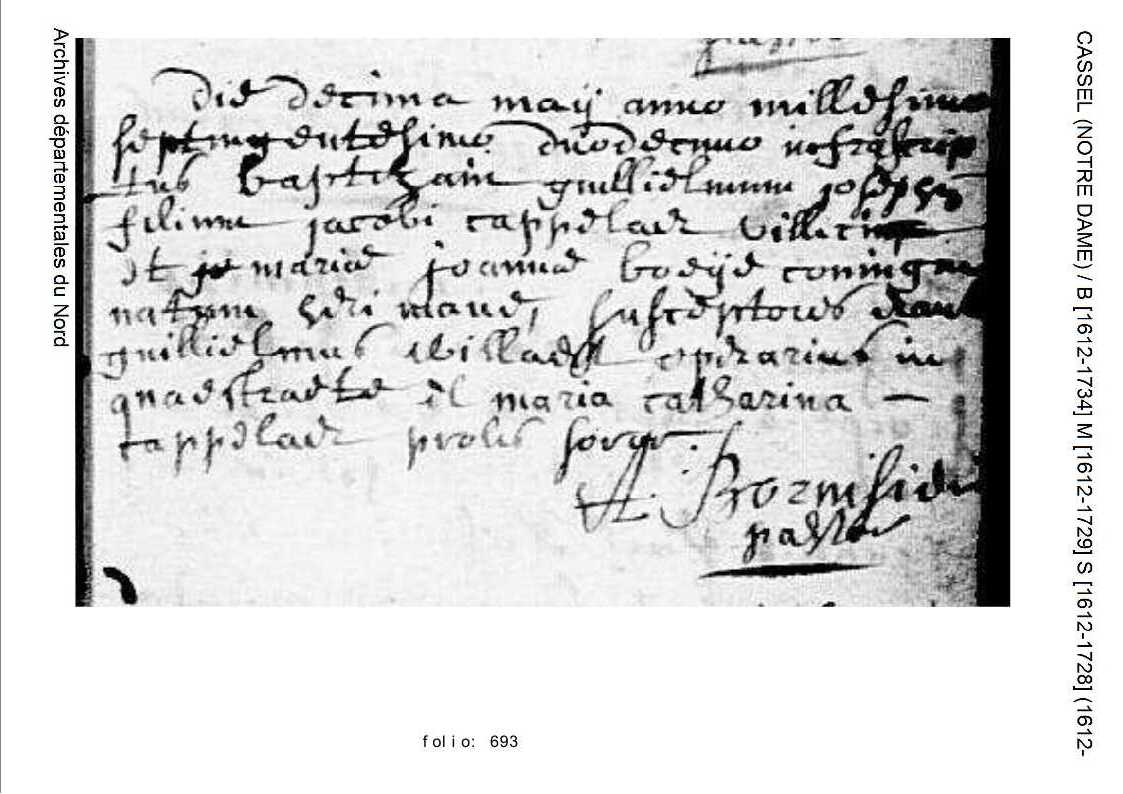 Archives départementales du Nord
CASSEL (NOTRE DAME) / B [1612-1734] M [1612-1729] S [1612-1728] (1612-
die decima maij anno millesimo
septingentesimo duodecimo infrascrip
tus baptizavi guillielmum joseph
filium jacobi cappelaer villici
et mariae joannae
natum heri mane, susceptores
guillielmus operarius in
quaestraete et maria catharina —
cappelaer prolis soror.
pastor
folio: 693